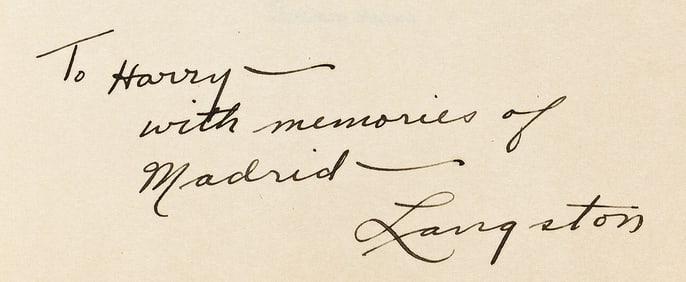 To Harry—
with memories of
Madrid—
Langston